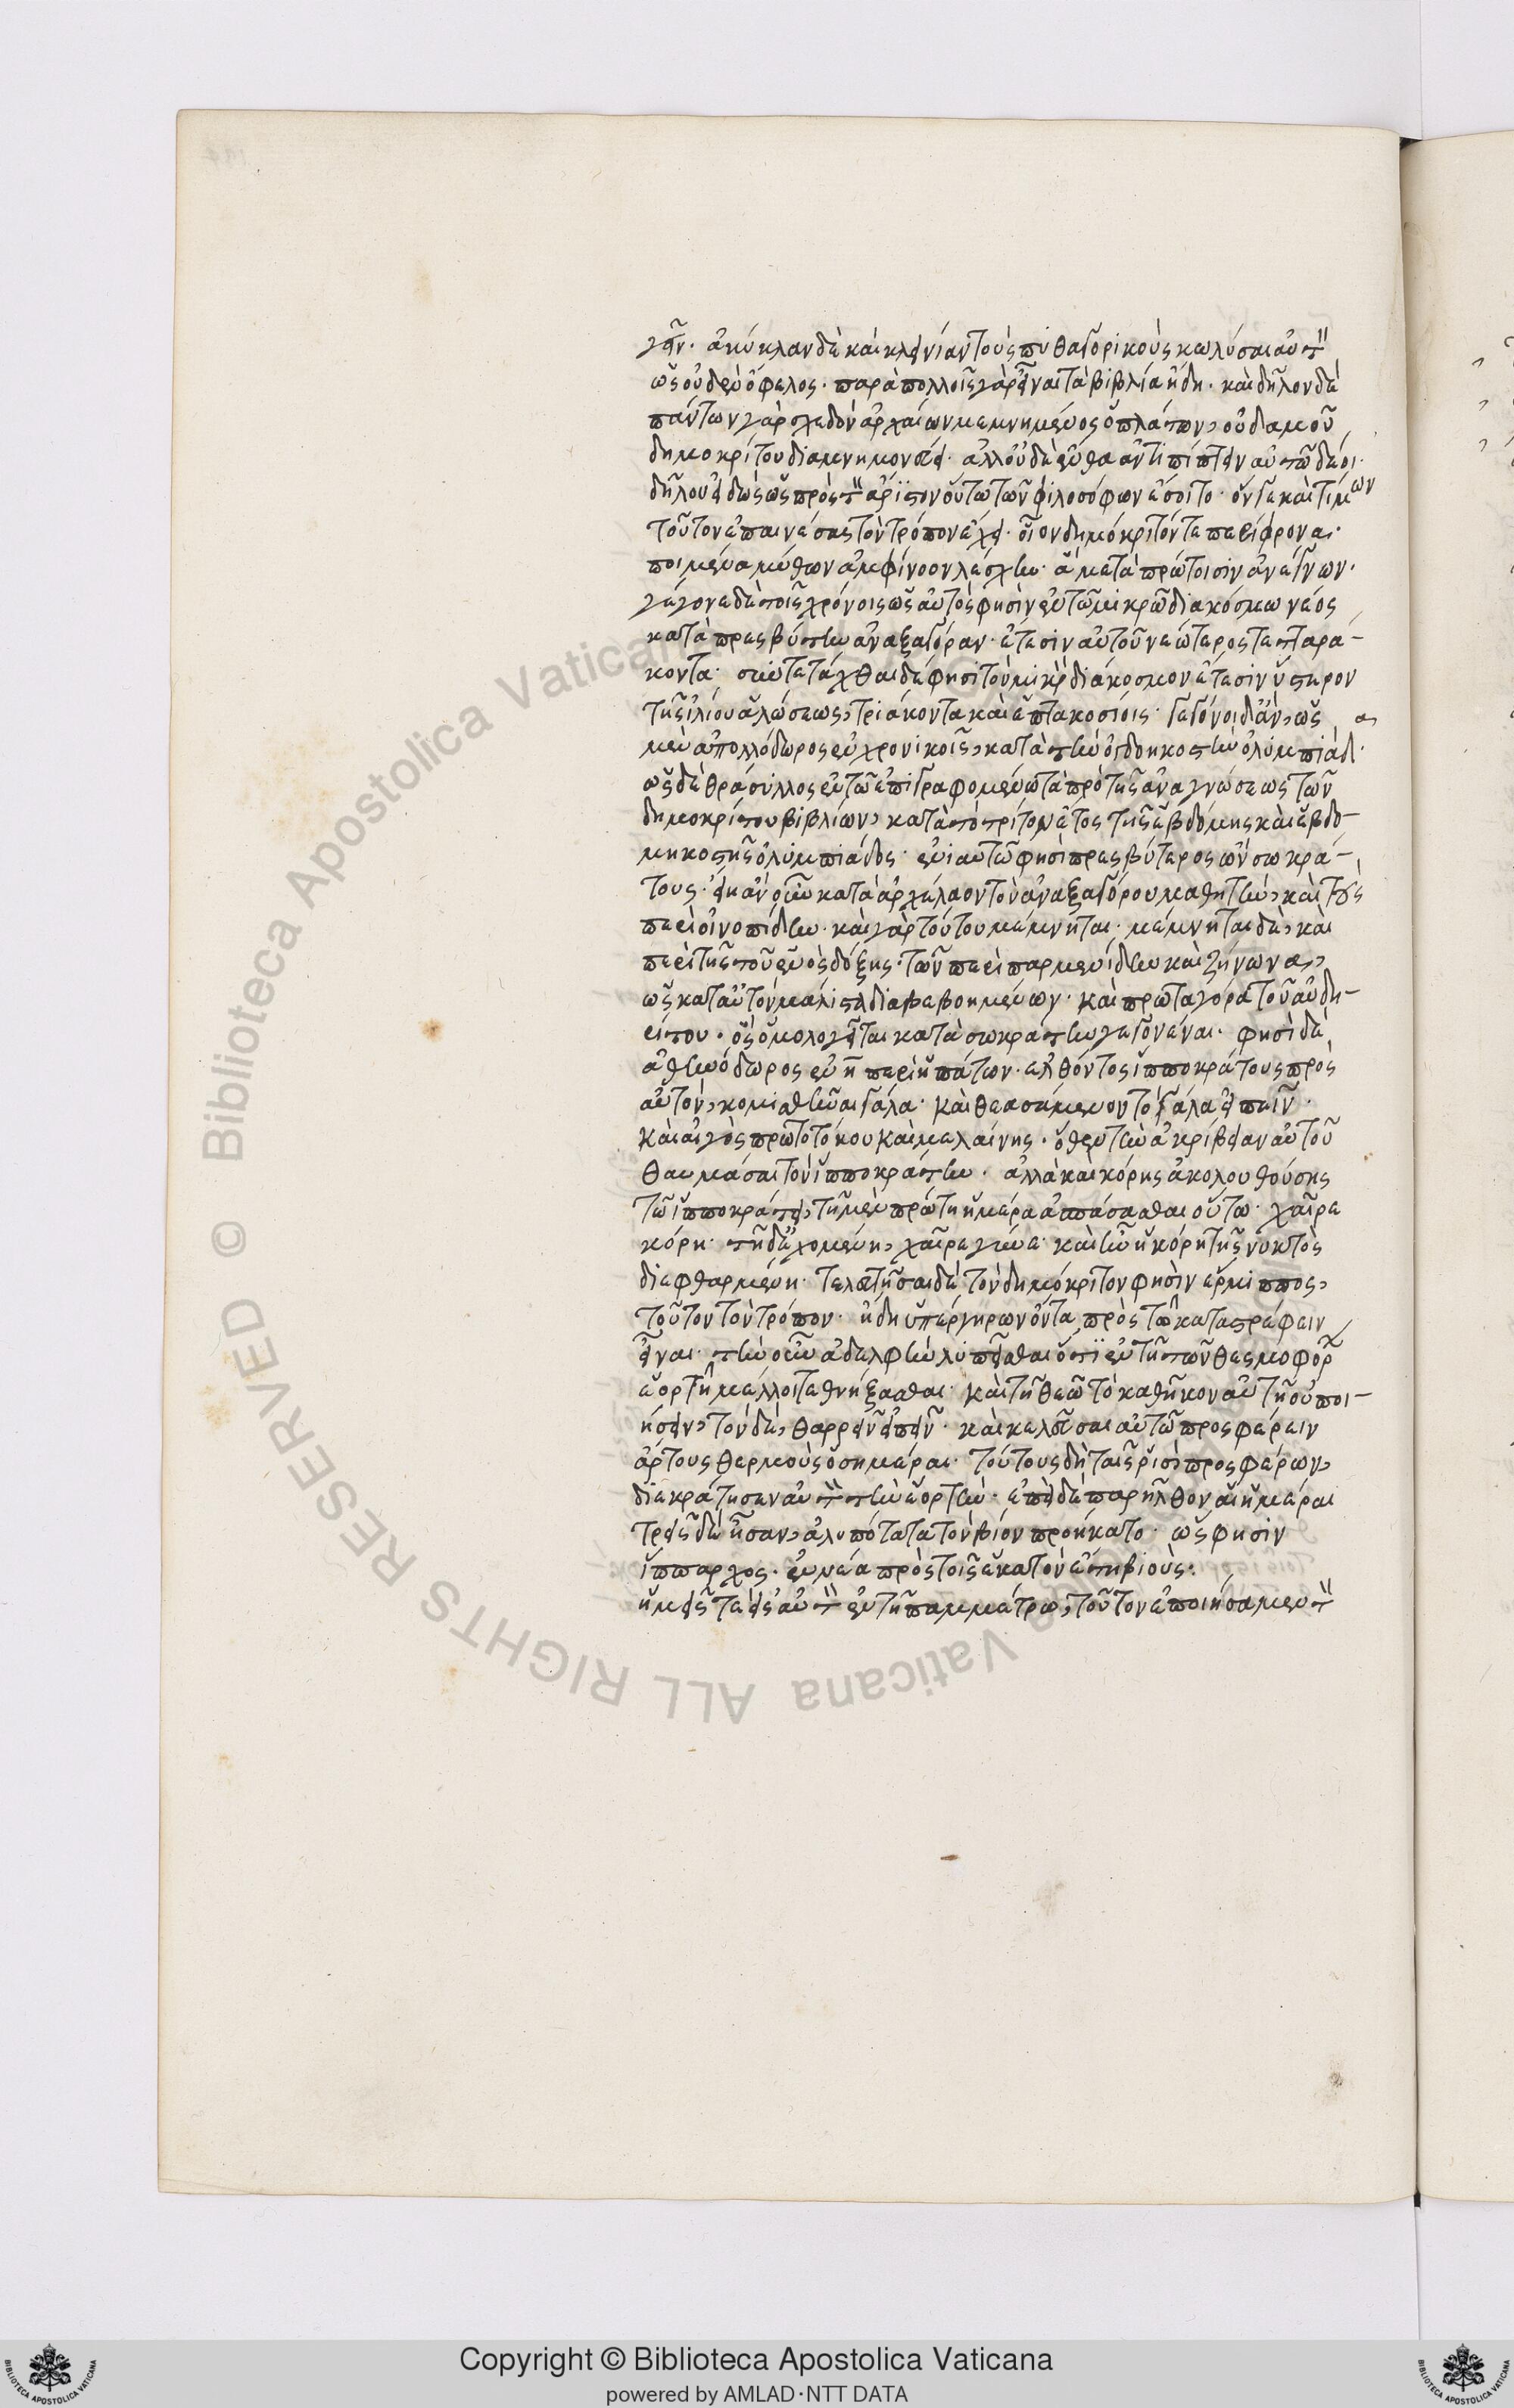 γεῖν. ἀμύκλαν δὲ καὶ κλεινίαν τοὺς πυθαγορικοὺς κωλῦσαι αὐτὸν
ὡς οὐδὲν ὄφελος. παρὰ πολλοῖς γὰρ εἶναι τὰ βιβλία ἤδη. καὶ δῆλον δέ
πάντων γὰρ σχεδὸν ἀρχαίων μεμνημένος ὁ πλάτων, οὐδαμοῦ
δημοκρίτου διαμνημονεύει. ἀλλ' οὐδὲ ἔνθα ἀντιπίπτειν αὐτῷ δέοι.
δῆλον εἰδὼς ὡς πρὸς τὸν ἄριστον οὕτω τῶν φιλοσόφων ἔσοιτο. ὅν γε καὶ τίμων
τοῦτον ἐπαινέσας τὸν τρόπον ἔχει. οἷον δημόκριτόν τε περίφρονα.
ποιμένα μύθων ἀμφίνοον λέσχην. ἃ μετὰ πρώτοισιν ἀνέγνων.
γέγονε δὲ τοῖς χρόνοις ὡς αὐτός φησιν ἐν τῷ μικρῷ διακόσμω νέος
κατὰ πρεσβύτην ἀναξαγόραν. ἔτεσιν αὐτοῦ νεώτερος τετταρά-
κοντα. συντετάχθαι δέ φησι τὸν μικρὸν διάκοσμον ἔτεσιν ὕστερον
τῆς ἰλίου ἁλώσεως, τριάκοντα καὶ ἑπτακοσίοις. γεγόνοι δ' ἂν, ὡς
μὲν ἀπολλόδωρος ἐν χρονικοῖς, κατὰ τὴν ὀγδοηκοστὴν ὀλυμπιάδα.
ὡς δὲ θράσυλλος ἐν τῷ ἐπιγραφομένω τὰ πρὸ τῆς ἀναγνώσεως τῶν
δημοκρίτου βιβλίων, κατὰ τὸ τρίτον ἔτος τῆς ἑβδόμης καὶ ἑβδο-
μηκοστῆς ὀλυμπιάδος. ἐνιαυτῷ φησὶ πρεσβύτερος ὢν σωκρά-
τους. εἴη ἂν οὖν κατὰ ἀρχέλαον τὸν ἀναξαγόρου μαθητὴν, καὶ τοὺς
περὶ οἰνοπίδην. καὶ γὰρ τούτου μέμνηται. μέμνηται δὲ, καὶ
περὶ τῆς τοῦ ἑνὸς δόξης. τῶν περὶ παρμενίδην καὶ ζήνωνα,
ὡς κατ' αὐτὸν μάλιστα διαβεβοημένων. καὶ πρωταγόρα τοῦ αὐδη-
είτου. ὃς ὁμολογεῖται κατὰ σωκράτην γεγονέναι. φησὶ δὲ
ἀθηνόδωρος ἐν η περὶ ἡπάτων. ἐλθόντος ἱπποκράτους πρὸς
αὐτὸν, κομισθῆναι γάλα. καὶ θεασάμενον τὸ γάλα εἰπεῖν.
καὶ αἰγὸς πρωτοτόκου καὶ μελαίνης. ὅθεν τὴν ἀκρίβειαν αὐτοῦ
θαυμάσαι τὸν ἱπποκράτην. ἀλλὰ καὶ κόρης ἀκολουθούσης
τῷ ἱπποκράτει, τῇ μὲν πρώτη ἡμέρα ἀσπάσασθαι οὕτω. χαῖρε
κόρη. τῇ δ' ἐχομένη, χαῖρε γύναι. καὶ ἦν ἡ κόρη τῆς νυκτὸς
διεφθαρμένη. τελευτῆσαι δὲ τὸν δημόκριτον φησὶν ἕρμιππος,
τοῦτον τὸν τρόπον. ἤδη ὑπέργηρων ὄντα πρὸς τῷ καταστρέφειν
εἶναι. τὴν οὖν ἀδελφὴν λυπεῖσθαι ὅτι ἐν τῇ τῶν θεσμοφόρων
ἑορτῇ μέλλοι τεθνήξεσθαι. καὶ τῇ θεῷ τὸ καθῆκον αὐτὴ οὐ ποι-
ήσειν, τὸν δὲ, θαρρεῖν εἰπεῖν. καὶ κελεῦσαι αὐτῷ προσφέρειν
ἄρτους θερμοὺς ὁσημέραι. τούτους δὴ ταῖς ῥισὶ προσφέρων,
διεκράτησεν αὑτὸν τὴν ἑορτὴν. ἐπεὶ δὲ παρῆλθον αἱ ἡμέραι
τρεῖς δὲ ἦσαν, ἀλυπότατα τὸν βίον προήκατο. ὥς φησιν
ἵππαρχος. ἐννέα πρὸς τοῖς ἑκατὸν ἔτη βιούς.
ἡμεῖς τε εἰς αὐτὸν ἐν τῇ παμμέτρω, τοῦτον ἐποιήσαμεν τὸν
Copyright © Biblioteca Apostolica Vaticana
powered by AMLAD·NTT DATA